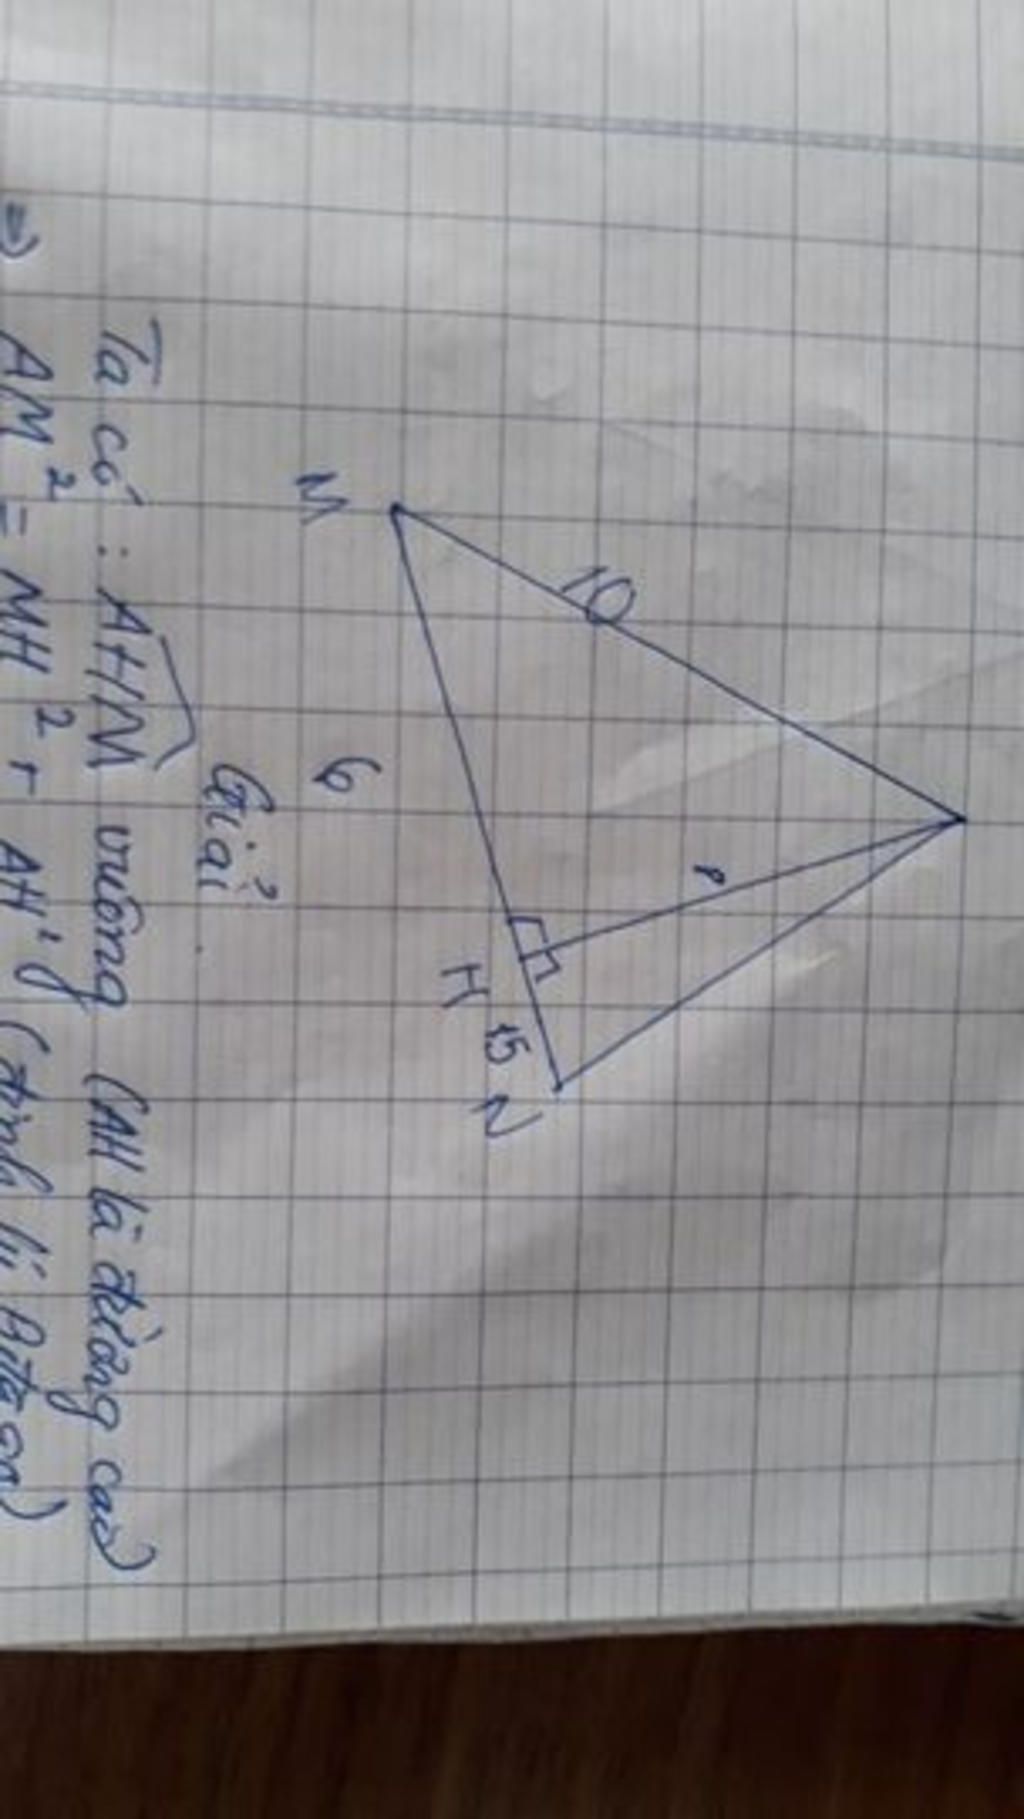 10
M
6
H
15
N
Giải.
Ta có: AHM vuông (AH là đường cao)
=> AM² = MH² + AH² (định lí Pitago)